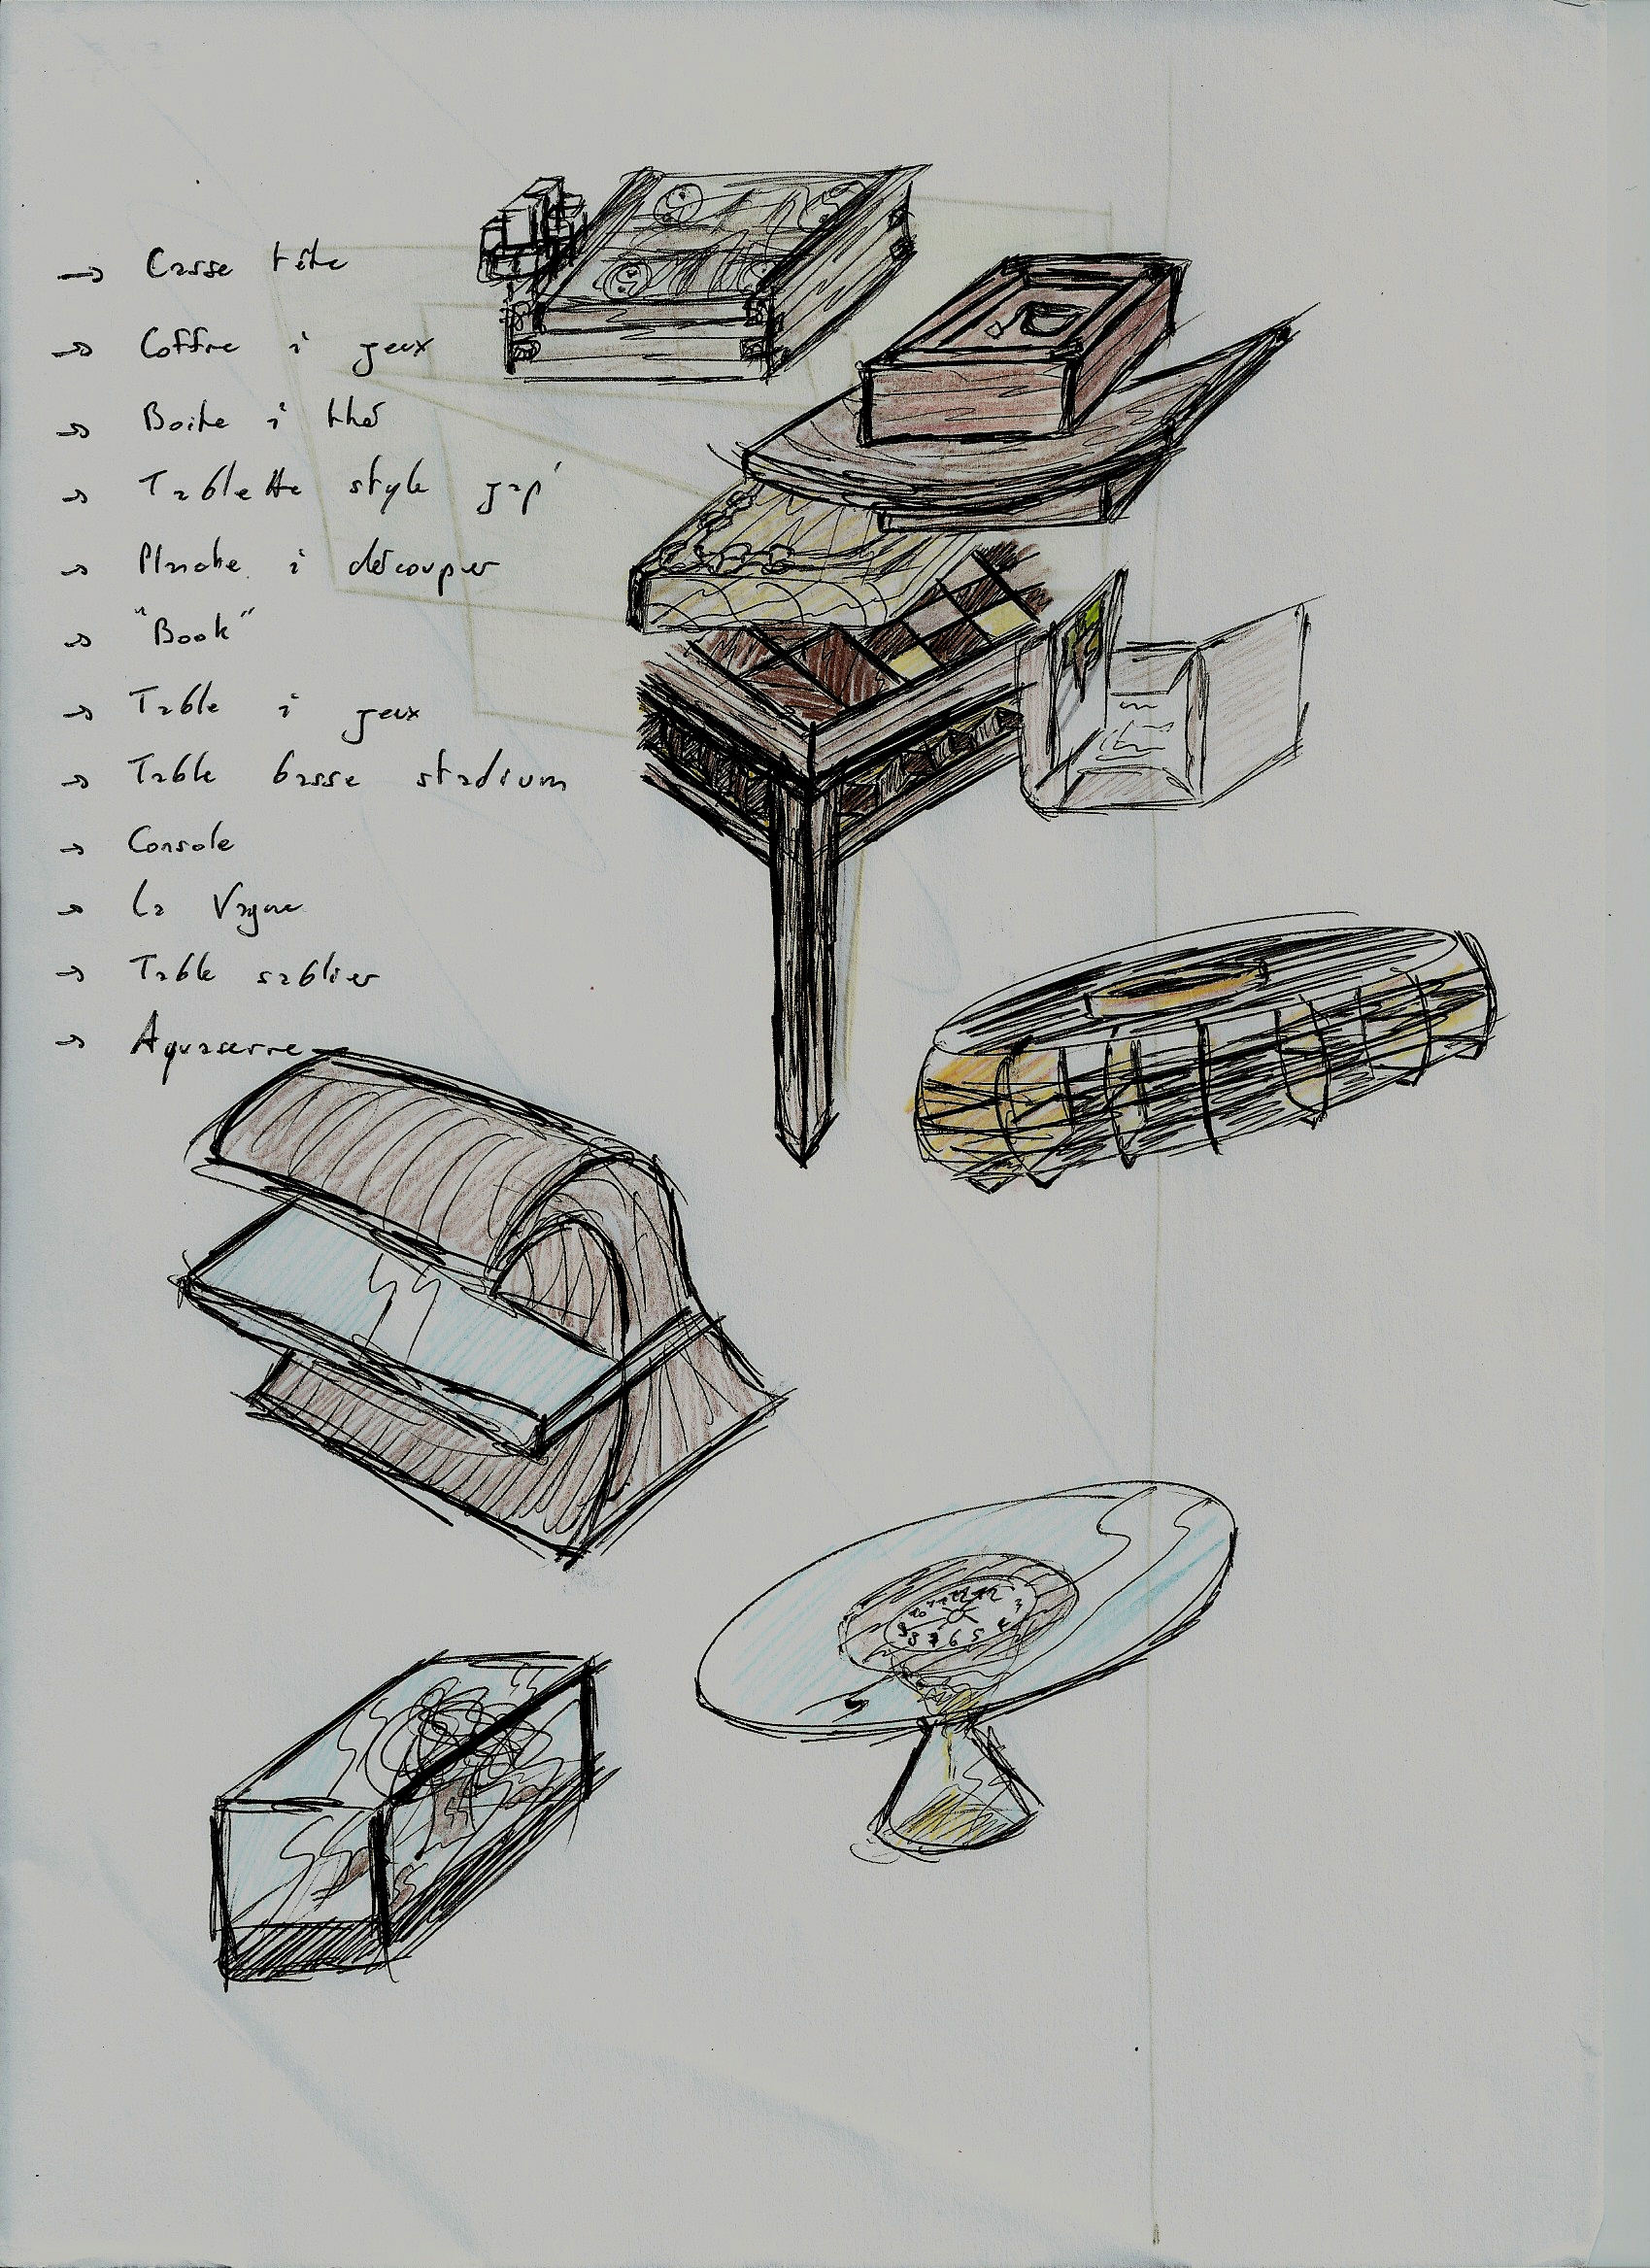 → Casse tête
→ Coffre à jeux
→ Boite à thé
→ Tablette style jap'
→ Planche à découper
→ "Book"
→ Table à jeux
→ Table basse stadium
→ Console
→ La Vague
→ Table sablier
→ Aquaserre